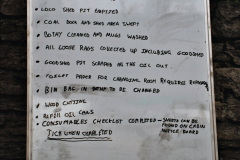 • LOCO SHED PIT EMPTIED
• COAL DOCK AND SHED AREA SWEPT
• BOTHY CLEANED AND MUGS WASHED
• ALL LOOSE RAGS COLLECTED UP INCLUDING GOODSHED
• GOODSHED PIT SCRAPED OR THE OIL OUT
• TOILET PAPER FOR CHANGING ROOM REQUIRE
• BIN BAG IN NEED TO BE CHANGED
• WOOD CUTTING
• REFILL OIL CANS
• CONSUMABLES CHECKLIST COMPLETED - SHEETS CAN BE
FOUND ON CABIN
NOTICE BOARD
TICK WHEN COMPLETED